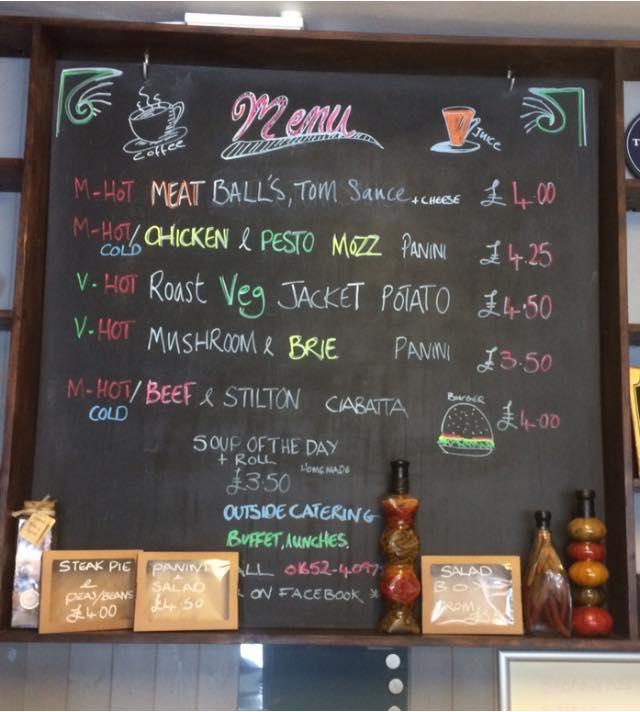 Menu
coffee
Juice
M-HOT MEAT BALL'S, TOM Sauce + CHEESE £4.00
M-HOT/COLD CHICKEN & PESTO MOZZ PANINI £4.25
V-HOT Roast Veg JACKET POTATO £4.50
V-HOT MUSHROOM & BRIE PANINI £3.50
M-HOT/COLD BEEF & STILTON CIABATTA £4.00
BURGER
SOUP OF THE DAY
+ ROLL HOMEMADE
£3.50
OUTSIDE CATERING
BUFFET, LUNCHES.
ALL 01652-409
ON FACEBOOK
STEAK PIE
&
PEAS/BEANS
£4.00
PANINI
&
SALAD
£4.50
SALAD
BOX
FROM